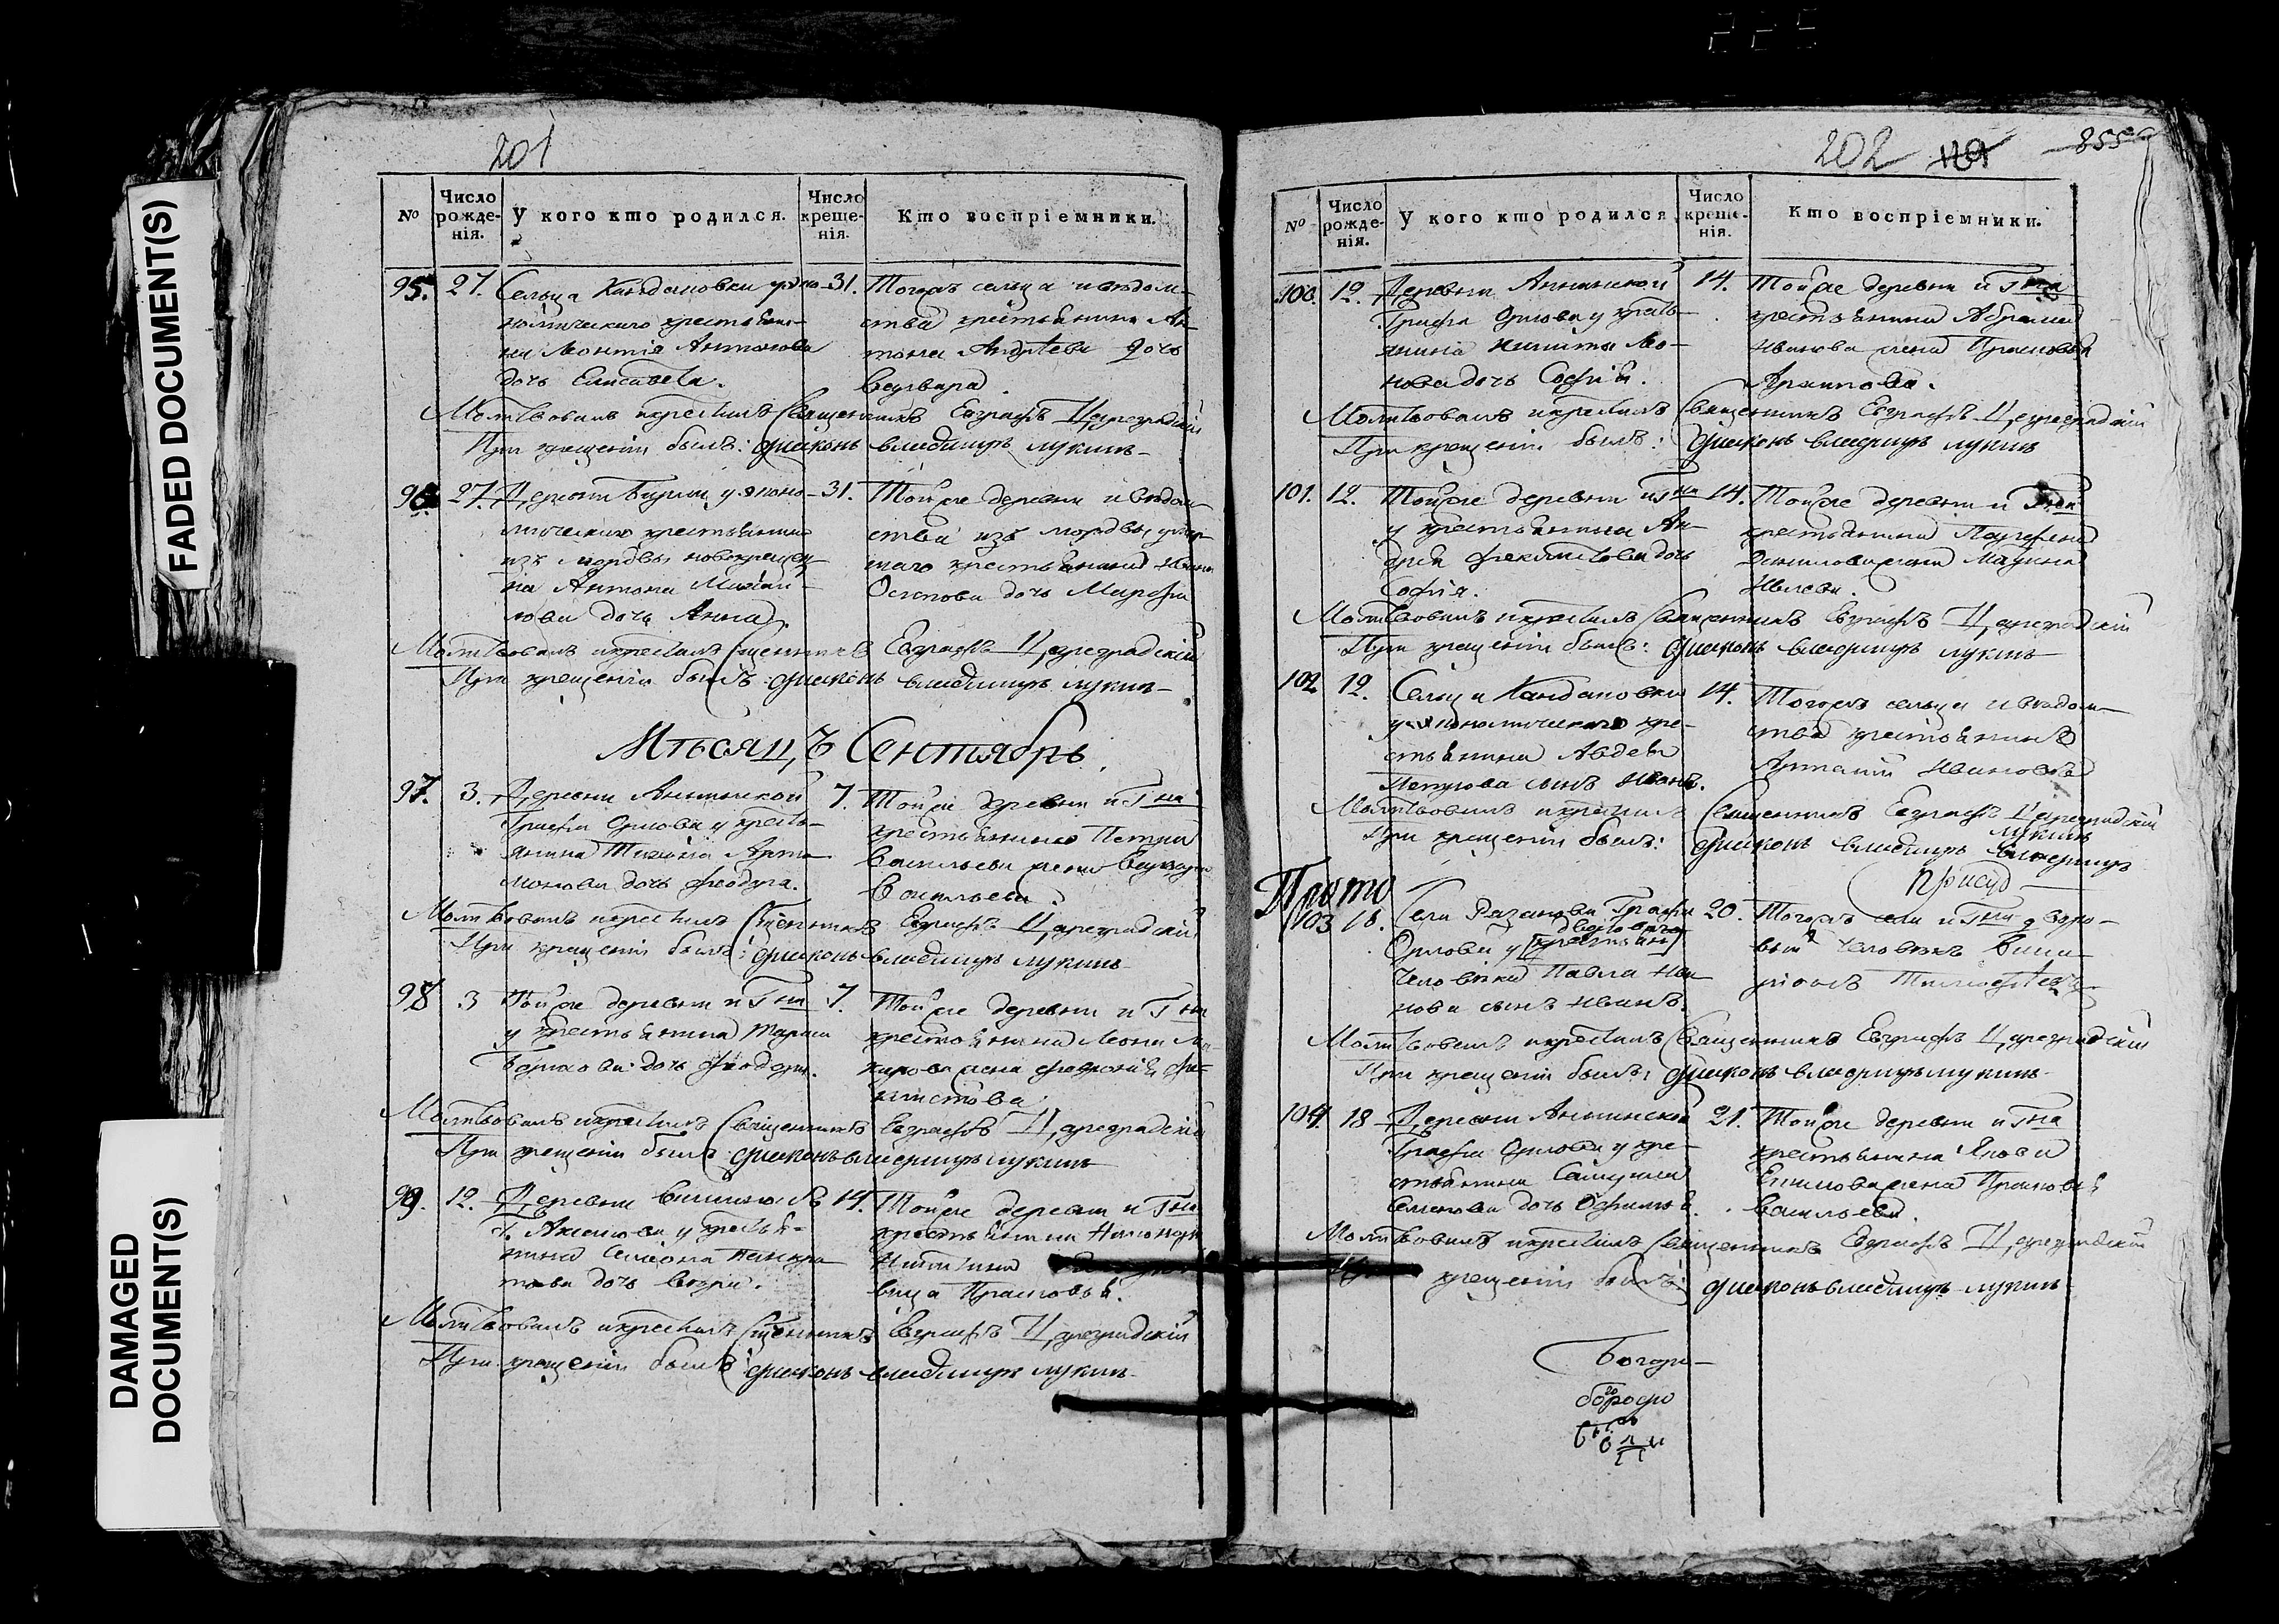 FADED DOCUMENT(S)
DAMAGED
DOCUMENT(S)
201
№
Число рожде- нія.
У кого кто родился.
Число креще- нія.
Кто воспріемники.
95. 27. Сельца Кандаковки у эко-
номическаго крестьяни-
на Антонова
дочь Елисавета.
31. Тогожъ сельца и вѣдом-
ства крестьянина Ан-
тона Андрѣева дочь
Варвара.
Молитвовалъ и крестилъ Священникъ Евграфъ Цареградскій
При крещеніи былъ: диаконъ владимиръ лукинъ
96. 27. Деревни у эконо-
мическаго крестьянина
изъ мордвы новокрещен-
на Антона Михай-
лова дочь Анна.
31. Тойже деревни и вѣдом-
ства изъ мордвы умер-
шаго крестьянина
Осипова дочь Марфа
Молитвовалъ и крестилъ Сщенникъ Евграфъ Цареградскій
При крещеніи былъ: диаконъ владимиръ лукинъ
Мѣсяцъ Сентябрь.
97. 3. Деревни Аннинской
Графа Орлова у кресть-
янина Тихона Арта-
монова дочь Феодора.
7. Тойже деревни и Гна
крестьянина Петра
Васильева жена Варвара
Васильева.
Молитвовалъ и крестилъ Сщенникъ Евграфъ Цареградскій
При крещеніи былъ: диаконъ владимиръ лукинъ
98 3 Тойже деревни и Гна
у крестьянина Тараса
дочь Феодора.
7. Тойже деревни и Гна
крестьянина Леона Ма-
карова жена Феврония Фе-
Молитвовалъ и крестилъ Священникъ Евграфъ Цареградскій
При крещеніи былъ: диаконъ владимиръ лукинъ
99. 12. Деревни
Г. у крестья-
нина Семіона Панкра-
това дочь
14. Тойже деревни и Гна
крестьянина
Никитина
вица Прасковья.
Молитвовалъ и крестилъ Сщенникъ Евграфъ Цареградскій
При крещеніи былъ: диаконъ владимиръ лукинъ
202
№
Число рожде- нія.
У кого кто родился.
Число креще- нія.
Кто воспріемники.
100. 12. Деревни Аннинской
Графа Орлова у кресть-
янина Никиты Мо-
нова дочь Софія.
14. Тойже деревни и Гна
крестьянина Абрама
Иванова жена Прасковья
Архипова.
Молитвовалъ и крестилъ Священникъ Евграфъ Цареградскій
При крещеніи былъ: диаконъ владимиръ лукинъ
101. 12. Тойже деревни и Гна
у крестьянина Ан-
дрея Феклистова дочь
Софія.
14. Тойже деревни и Гна
крестьянина Парфена
Данилова жена Марина
Молитвовалъ и крестилъ Священникъ Евграфъ Цареградскій
При крещеніи былъ: диаконъ владимиръ лукинъ
102 12. Сельца Кандаковки
у экономическаго кре-
стьянина Авдея
Петрова сынъ Иванъ.
14. Тогожъ сельца и вѣдом-
ства крестьянинъ
Артамонъ Ивановъ
Молитвовалъ и крестилъ Священникъ Евграфъ Цареградскій
При крещеніи былъ: диаконъ владимиръ лукинъ
103 18. Села Рязанова Графа
Орлова у двороваго
человѣка Павла Ива-
нова сынъ Иванъ.
20. Тогожъ села и Гна дворо-
вый человѣкъ Васи-
Тимофѣевъ
Молитвовалъ и крестилъ Священникъ Евграфъ Цареградскій
При крещеніи былъ: диаконъ владимиръ лукинъ
104. 18 Деревни Аннинской
Графа Орлова у кре-
стьянина Самуила
Семенова дочь
21. Тойже деревни и Гна
крестьянина Якова
жена Прасковья
Васильева.
Молитвовалъ и крестилъ Священникъ Евграфъ Цареградскій
При крещеніи былъ: диаконъ владимиръ лукинъ